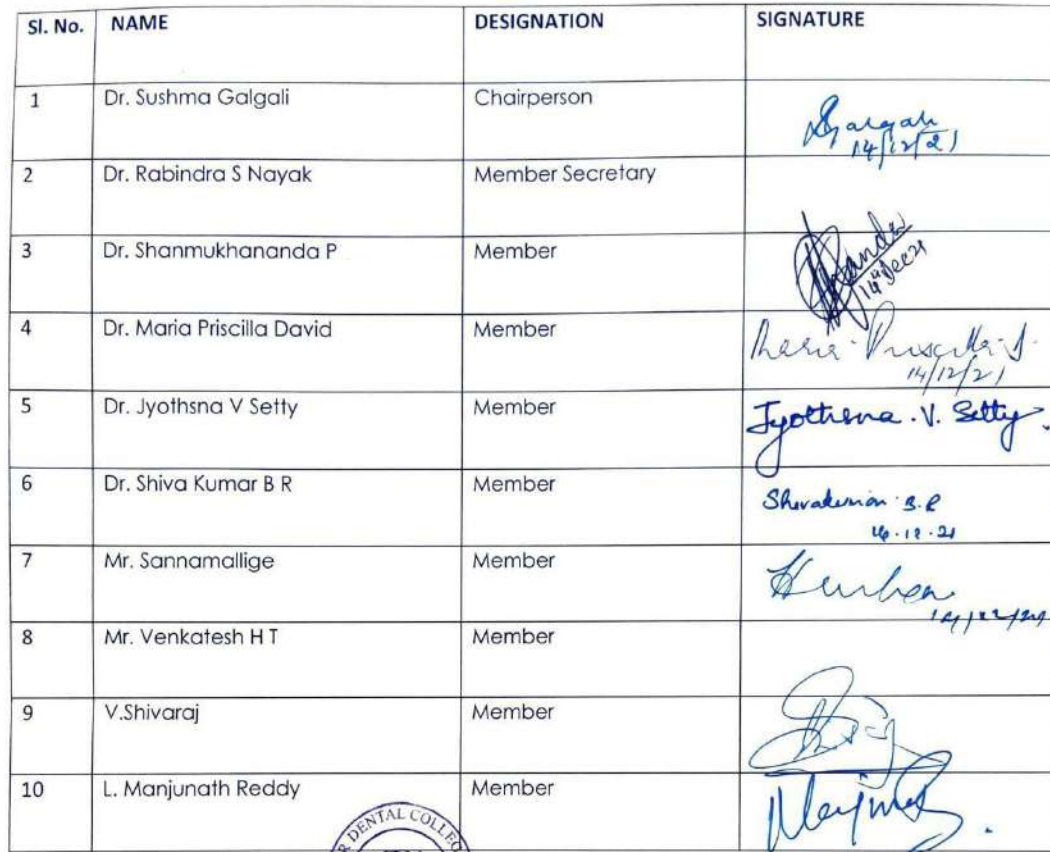 Sl. No. NAME DESIGNATION SIGNATURE
1 Dr. Sushma Galgali Chairperson
14/12/21
2 Dr. Rabindra S Nayak Member Secretary
3 Dr. Shanmukhananda P Member
14th Dec 21
4 Dr. Maria Priscilla David Member Maria Priscilla D.
14/12/21
5 Dr. Jyothsna V Setty Member Jyothsna . V. Setty
6 Dr. Shiva Kumar B R Member Shivakumar B.R
7 Mr. Sannamallige Member
8 Mr. Venkatesh H T Member
9 V.Shivaraj Member
10 L. Manjunath Reddy Member
R DENTAL COLLEG